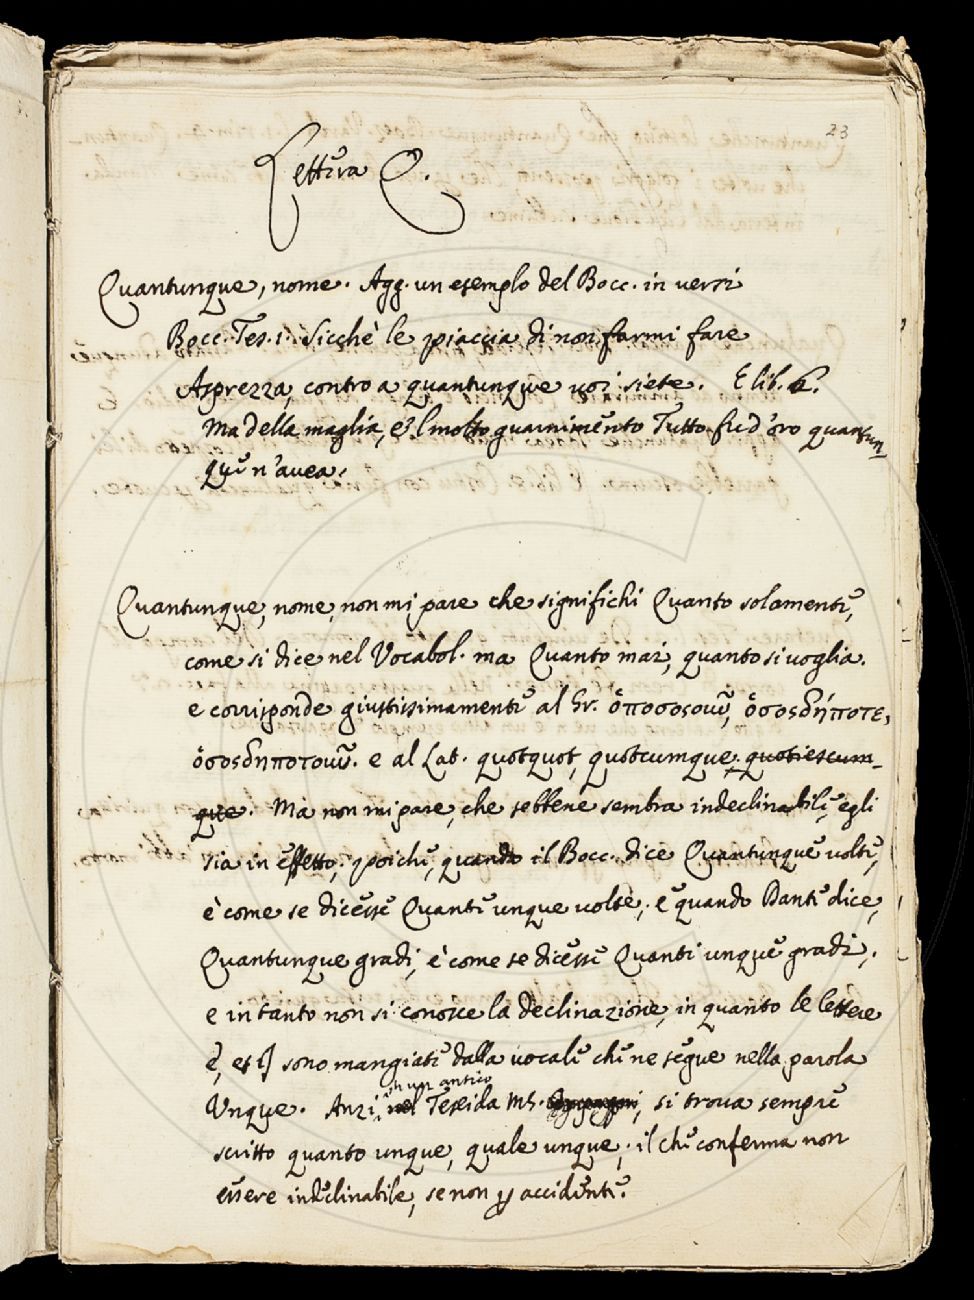 23
Lettera Q.
Quantunque, nome. Agg. un esemplo del Bocc. in versi
Bocc. Tes. 1. Sicchè le piaccia di non farmi fare
Asprezza, contro a quantunque voi siete. E lib. 6.
Ma della maglia, e'l molto guarnimento Tutto fu d'oro quantun-
que n'avea.
Quantunque, nome, non mi pare che significhi Quanto solamente,
come si dice nel Vocabol. ma Quanto mai, quanto si voglia.
e corrisponde giustissimamente al Gr. ὁποσοσοῦν, ὅσοςδήποτε,
ὁσοςδηποτοῦν. e al Lat. quotquot, quotcumque, quotiescum-
que. Ma non mi pare, che sebbene sembra indeclinabile, egli
sia in effetto, poichè, quando il Bocc. dice Quantunque volte,
è come se dicesse Quante unque volte; e quando Dante dice,
Quantunque gradi, è come se dicesse Quanti unque gradi;
e intanto non si conosce la declinazione, in quanto le lettere
E, et I, sono mangiate dalla vocale che ne segue nella parola
Unque. Anzi, in un antico Teseida MS. si trova sempre
scritto quanto unque, quale unque; il che conferma non
essere indeclinabile, se non p accidente.